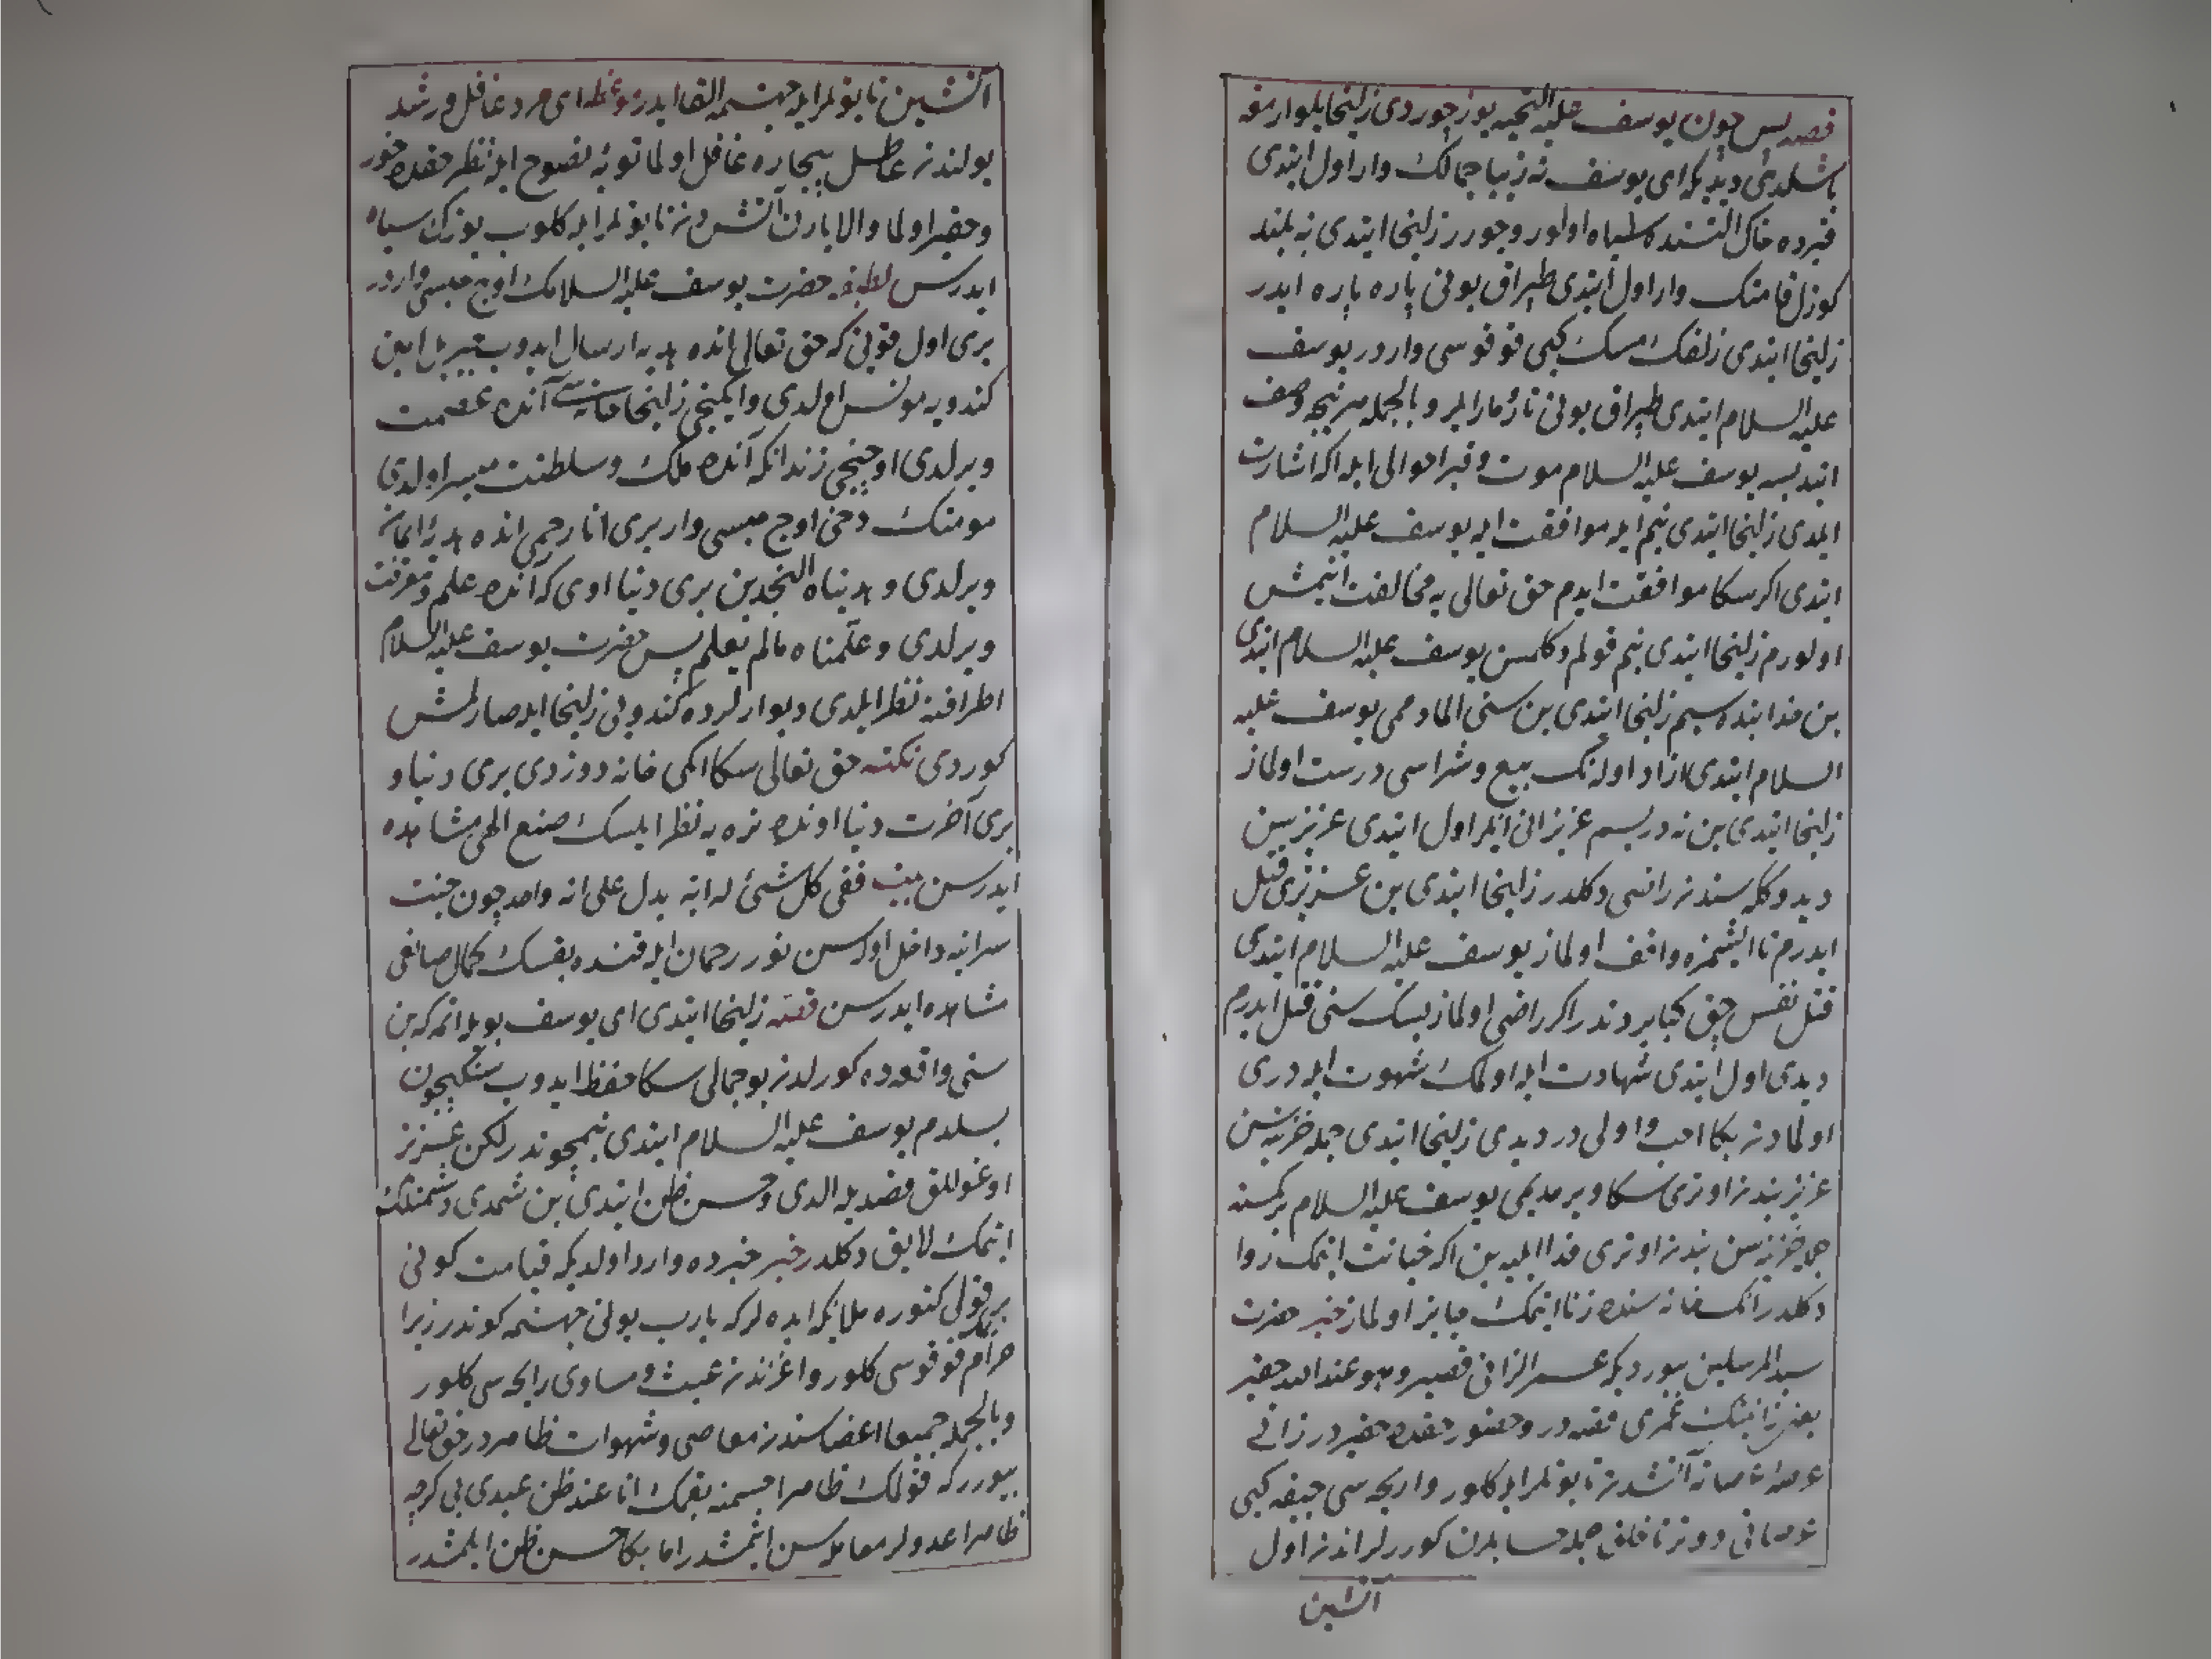 قصه پس چون یوسف علیه التحیه یوز چوردی زلیخا یلوارمغه
باشلدی دیدیکه ای یوسف نه زیبا جمالک وار اول ایتدی
قبرده خاک التنده سیاه اولور و چورر زلیخا ایتدی نه بلند
کوزل قامتک وار اول ایتدی طپراق بونی پاره پاره ایدر
زلیخا ایتدی زلفک مسک کبی قوقوسی واردر یوسف
علیه السلام ایتدی طپراق بونی تارومار ایلر و بالجمله هر نیجه وصف
ایتدیسه یوسف علیه السلام موت و قبر احوالی ایله اکا اشارت
ایلدی زلیخا ایتدی بنم ایله موافقت ایله یوسف علیه السلام
ایتدی اکر سکا موافقت ایدم حق تعالی یه مخالفت ایتمش
اولورم زلیخا ایتدی بنم قولم دکلمسن یوسف علیه السلام ایتدی
بن خدا بنده سیم زلیخا ایتدی بن سنی المادممی یوسف علیه
السلام ایتدی ازاد اولنک بیع و شراسی درست اولماز
زلیخا ایتدی بن نه دریسم عزیز انی ایلر اول ایتدی عزیز سن
دیدوککه سندن راضی دکلدر زلیخا ایتدی بن عزیزی قتل
ایدرم تا ایشمزه واقف اولماز یوسف علیه السلام ایتدی
قتل نفس چق کبایردندر اکر راضی اولمازیسک سنی قتل ایدرم
دیدی اول ایتدی شهادت ایله اولمک شهوت ایله دری
اولمادن بکا احب و اولی در دیدی زلیخا ایتدی جمله خزینه سن
عزیز بندن اوتری سکا ویرمدیمی یوسف علیه السلام بر کمسنه
جمله خزینه سن بندن اوتری فدا ایلیه بن اکا خیانت ایتمک روا
دکلدر انک خانه سنده زنا ایتمک جایز اولماز خبر حضرت
سید المرسلین بیوردیکه عمر الزانی قصیر و هو عند الله حقیر
یعنی زانینک عمری قصه در و حضور حقده حقیردر زانی
عرصه عرصاته آتشدن تابوتلر ایله کلور و اریحه سی جیفه کبی
عرصاتی دوتر تا خلق جمله حسابلرن کوررلر اندن اول
آتشین
آتشین تابوتلر ایله جهنمه القا ایدر موعظه ای مرد غافل و رشد
یولندن عاطل بیچاره غافل اولما توبه نصوح ایله نظر حقده خور
و حقیر اولما والا یارن آتشدن تابوتلر ایله کلوب یوزک سیاه
ایدرسن لطیفه حضرت یوسف علیه السلامک اوچ حبسی واردر
بری اول قوینی که حق تعالی انده هدیه ارسال ایدوب جبریل امین
کندویه مونس اولدی و ایکنجی زلیخا خانه سی آنده عصمت
ویرلدی اوچنجی زندانکه آنده ملک و سلطنت میسر اولدی
مومنک دخی اوچ حبسی وار بری انا رحمی انده هدیه ایمان
ویرلدی و هدیناه النجدین بری دنیا اوی که آنده علم و معرفت
ویرلدی و علمناه مالم یعلم پس حضرت یوسف علیه السلام
اطرافنه نظر ایلدی دیوارلرده کندونی زلیخا ایله صارلمش
کوردی نکته حق تعالی سکا ایکی خانه دوزدی بری دنیا و
بری آخرت دنیا اونده نره یه نظر ایلسک صنع الهی مشاهده
ایدرسن بیت ففی کل شئ له ایة یدل علی انه واحد چون جنت
سراینه داخل اوله سن نور رحمان ایله قنده بقسک کمال صانعی
مشاهده ایدرسن قصه زلیخا ایتدی ای یوسف بویله ایتمه که بن
سنی واقعه ده کورلدن بو جمالی سکا حفظ ایدوب سنکیچون
بسلدم یوسف علیه السلام ایتدی بنمچوندر لکن عزیز
اوغوللق قصدیله الدی و حسن ظن ایتدی بن شمدی دشمنلک
ایتمک لایق دکلدر خبر خبرده وارد اولدیکه قیامت کونی
بر قولی کتوره ملایکه ایده لرکه یارب بونی جهنمه کوندر زیرا
حرام قوقوسی کلور و اغزندن غیبت و مساوی رایحه سی کلور
و بالجمله جمیع اعضاسندن معاصی و شهوات ظاهردر حق تعالی
بیوررکه قولمک ظاهرا جسمنه بقمک انا عند ظن عبدی بی کرچه
ظاهرا عدولر معامله سن ایتمشدر اما بکا حسن ظن ایلمشدر